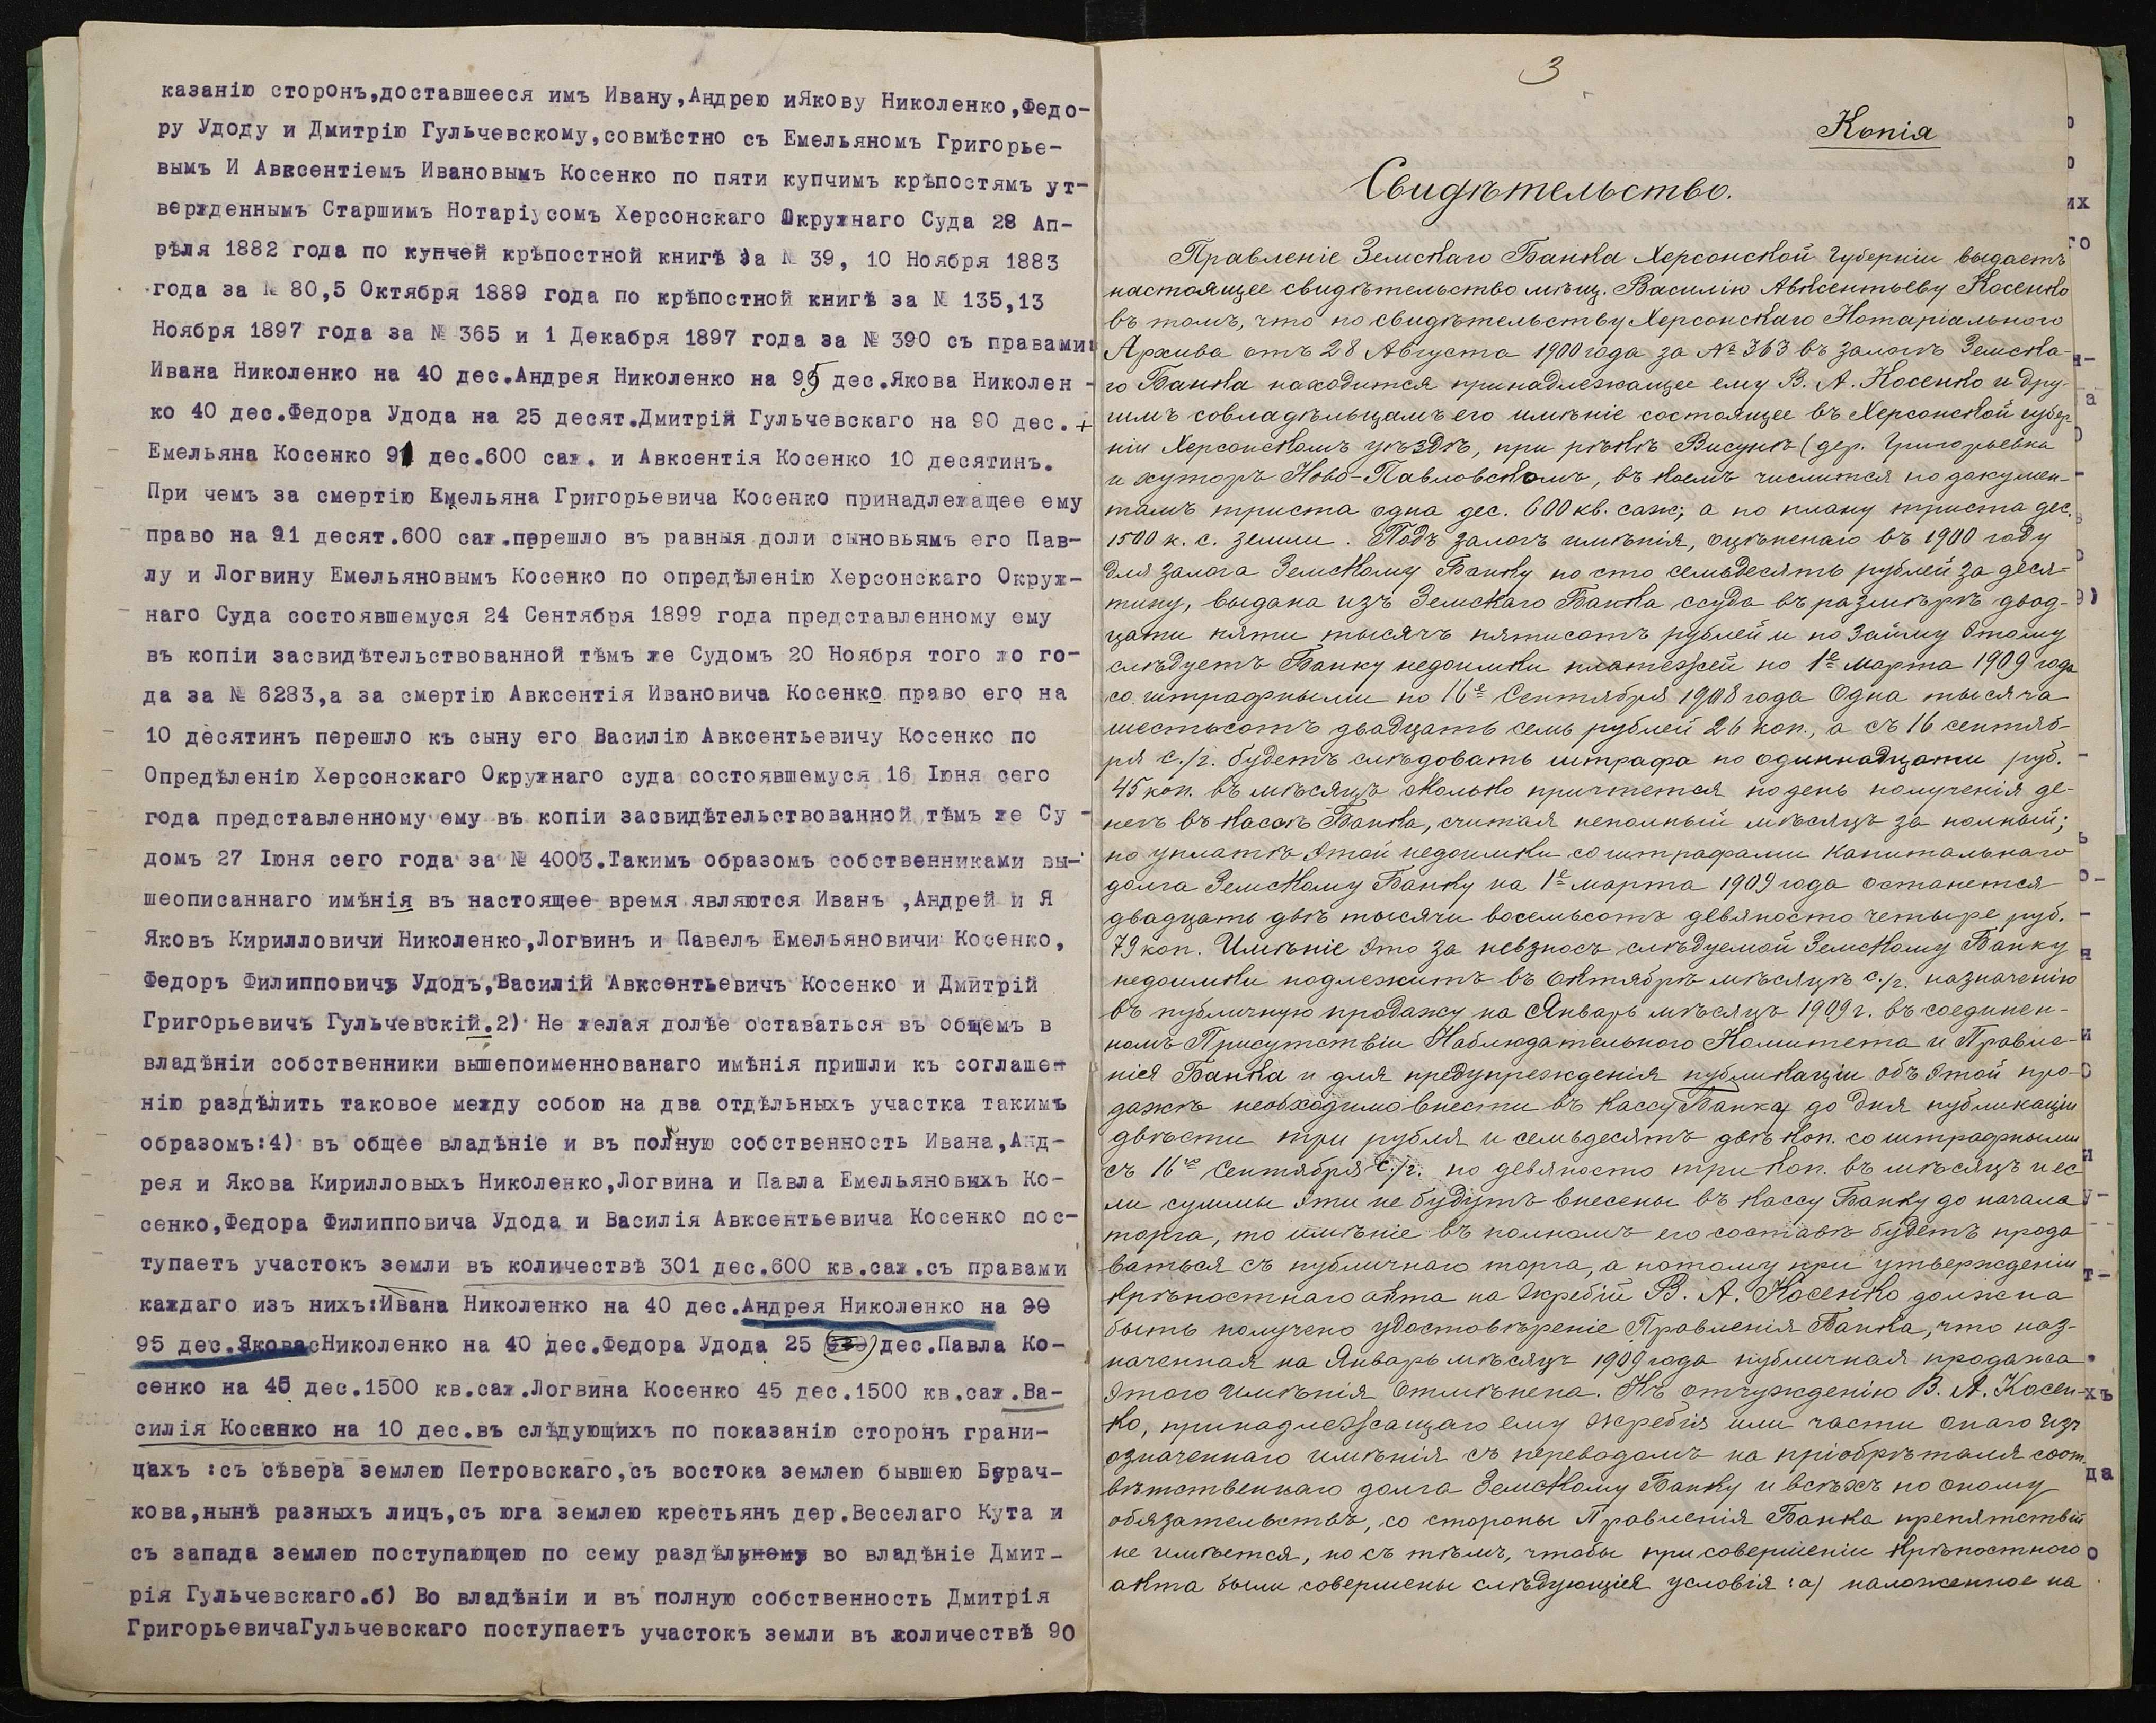 казанію сторонъ,доставшееся имъ Ивану,Андрею иЯкову Николенко,Федо-
ру Удоду и Дмитрію Гульчевскому,совмѣстно съ Емельяномъ Григорье-
вымъ И Авксентіемъ Ивановымъ Косенко по пяти купчимъ крѣпостямъ ут-
вержденнымъ Старшимъ Нотаріусомъ Херсонскаго Окружнаго Суда 28 Ап-
рѣля 1882 года по купчей крѣпостной книгѣ за № 39, 10 Ноября 1883
года за № 80,5 Октября 1889 года по крѣпостной книгѣ за № 135,13
Ноября 1897 года за № 365 и 1 Декабря 1897 года за № 390 съ правами:
Ивана Николенко на 40 дес.Андрея Николенко на 95 дес.Якова Николен-
ко 40 дес.Федора Удода на 25 десят.Дмитрій Гульчевскаго на 90 дес.+
Емельяна Косенко 91 дес.600 саж. и Авксентія Косенко 10 десятинъ.
При чемъ за смертію Емельяна Григорьевича Косенко принадлежащее ему
право на 91 десят.600 саж.перешло въ равныя доли сыновьямъ его Пав-
лу и Логвину Емельяновымъ Косенко по опредѣленію Херсонскаго Окруж-
наго Суда состоявшемуся 24 Сентября 1899 года представленному ему
въ копіи засвидѣтельствованной тѣмъ же Судомъ 20 Ноября того жо го-
да за № 6283,а за смертію Авксентія Ивановича Косенко право его на
10 десятинъ перешло къ сыну его Василію Авксентьевичу Косенко по
Опредѣленію Херсонскаго Окружнаго суда состоявшемуся 16 Іюня сего
года представленному ему въ копіи засвидѣтельствованной тѣмъ же Су-
домъ 27 Іюня сего года за № 4003.Такимъ образомъ собственниками вы-
шеописаннаго имѣнія въ настоящее время являются Иванъ ,Андрей и Я
Яковъ Кирилловичи Николенко,Логвинъ и Павелъ Емельяновичи Косенко,
Федоръ Филипповичъ Удодъ,Василій Авксентьевичъ Косенко и Дмитрій
Григорьевичъ Гульчевскій.2) Не желая долѣе оставаться въ общемъ в
владѣніи собственники вышепоименнованаго имѣнія пришли къ соглаше-
нію раздѣлить таковое между собою на два отдѣльныхъ участка такимъ
образомъ:4) въ общее владѣніе и въ полную собственность Ивана,Анд-
рея и Якова Кирилловыхъ Николенко,Логвина и Павла Емельяновыхъ Ко-
сенко,Федора Филипповича Удода и Василія Авксентьевича Косенко пос-
тупаетъ участокъ земли въ количествѣ 301 дес.600 кв.саж.съ правами
каждаго изъ нихъ:Ивана Николенко на 40 дес.Андрея Николенко на 90
95 дес.Якова Николенко на 40 дес.Федора Удода 25 дес.Павла Ко-
сенко на 45 дес.1500 кв.саж.Логвина Косенко 45 дес.1500 кв.саж.Ва-
силія Косенко на 10 дес.въ слѣдующихъ по показанію сторонъ грани-
цахъ :съ сѣвера землею Петровскаго,съ востока землею бывшею Бурач-
кова,нынѣ разныхъ лицъ,съ юга землею крестьянъ дер.Веселаго Кута и
съ запада землею поступающею по сему раздѣльному во владѣніе Дмит-
рія Гульчевскаго.б) Во владѣніи и въ полную собственность Дмитрія
ГригорьевичаГульчевскаго поступаетъ участокъ земли въ количествѣ 90
3
Копія
Свидѣтельство.
Правленіе Земскаго Банка Херсонской Губерніи выдаетъ
настоящее свидѣтельство мѣщ. Василію Авксентьеву Косенко
въ томъ, что по свидѣтельству Херсонскаго Нотаріального
Архива отъ 28 Августа 1900 года за № 363 въ залогѣ Земска-
го Банка находится принадлежащее ему В. А. Косенко и дру-
гимъ совладѣльцамъ его имѣніе состоящее въ Херсонской губер-
ніи Херсонскомъ уѣздѣ, при рѣкѣ Висунѣ (дер. Григорьевка
и хуторъ Ново-Павловскомъ, въ коемъ числится по докумен-
тамъ триста одна дес. 600 кв. саж; а по плану триста дес.
1500 к. с. земли. Подъ залогъ имѣнія, оцѣненаго въ 1900 году
для залога Земскому Банку по сто семьдесять рублей за деся-
тину, выдана изъ Земскаго Банка ссуда въ размѣрѣ двад-
цати пяти тысячъ пятисотъ рублей и по займу этому
слѣдуетъ Банку недоимки платежей по 1е марта 1909 года
со штрафными по 16е Сентября 1908 года Одна тысяча
шестьсотъ двадцать семь рублей 26 коп., а съ 16 сентяб-
ря с./г. будетъ слѣдовать штрафа по одиннадцати руб.
45 коп. въ мѣсяцъ сколько причтется по день полученія де-
негъ въ кассѣ Банка, считая неполный мѣсяцъ за полный;
по уплатѣ этой недоимки со штрафами капитальнаго
долга Земскому Банку на 1е марта 1909 года останется
двадцать двѣ тысячи восемьсотъ девяносто четыре руб.
79 коп. Имѣніе это за невзносъ слѣдуемой Земскому Банку
недоимки подлежитъ въ октябрѣ мѣсяцѣ с./г. назначенію
въ публичную продажу на Январь мѣсяцъ 1909 г. въ соединен-
номъ Присутствіи Наблюдательного Комитета и Правле-
нія Банка и для предупрежденія публикаціи объ этой про-
дажѣ необходимо внести въ кассу Банка до дня публикаціи
двѣсти три рубля и семьдесятъ двѣ коп. со штрафными
съ 16го Сентября с./г. по девяносто три коп. въ мѣсяцъ и ес
ли суммы эти не будутъ внесены въ кассу Банку до начала
торга, то имѣніе въ полномъ его составѣ будетъ прода
ваться съ публичнаго торга, а потому при утвержденіи
крѣпостнаго акта на жребій В. А. Косенко должна
быть получено удостовѣреніе Правленія Банка, что наз-
наченная на Январь мѣсяцъ 1909 года публичная продажа
этого имѣнія отмѣнена. Къ отчужденію В. А. Косен-
ко, принадлежащаго ему жребія или части онаго изъ
означеннаго имѣнія съ переводомъ на пріобрѣтателя соот
вѣтственнаго долга Земскому Банку и всѣхъ по оному
обязательствъ, со стороны Правленія Банка препятствій
не имѣется, но съ тѣмъ, чтобы при совершеніи крѣпостного
акта были совершены слѣдующія условія: а) наложенное на